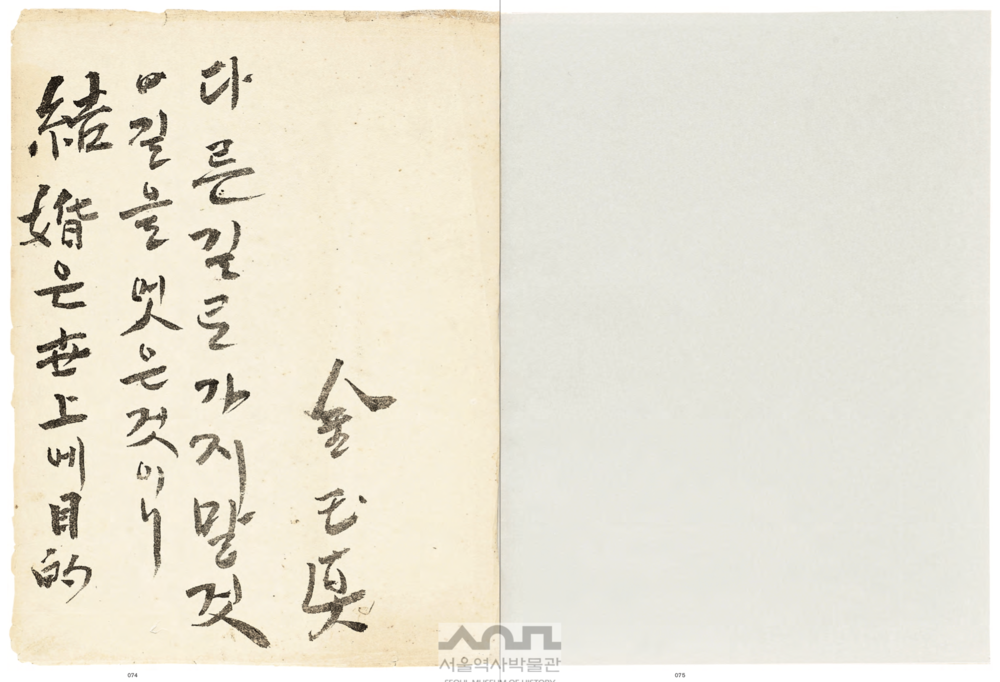 結婚은世上에目的
이길을멧은것이니
다른길로가지말것
金玉眞
서울역사박물관
SEOUL MUSEUM OF HISTORY
074
075